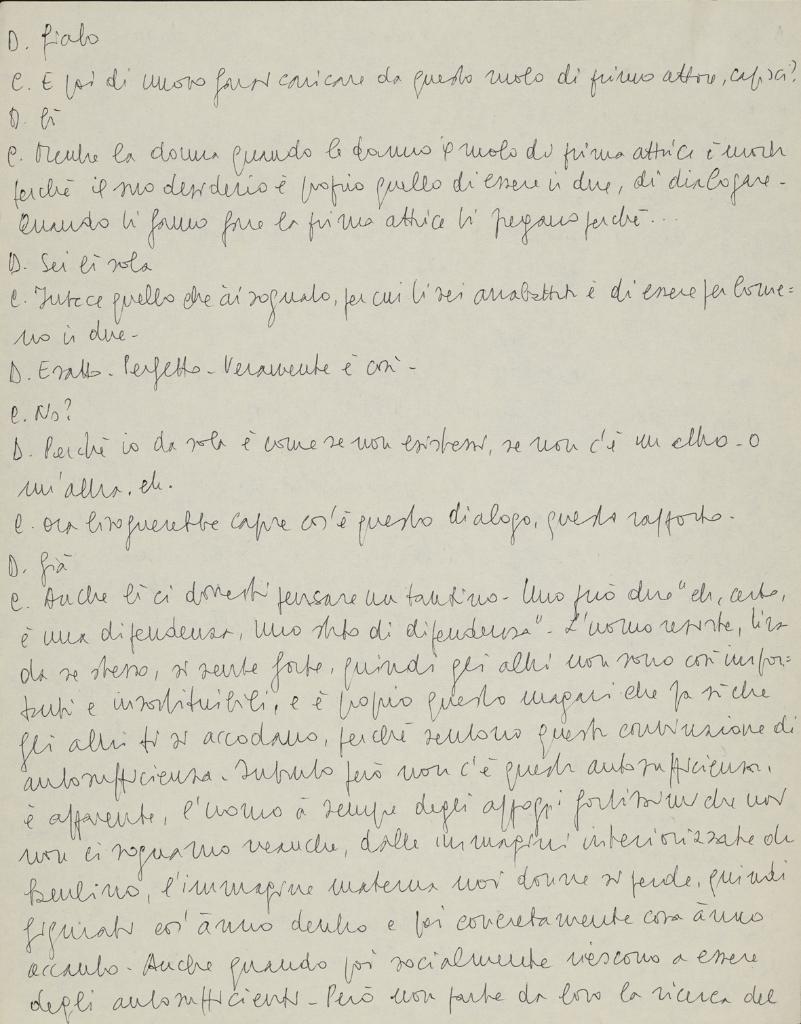 D. Giallo
C. E poi di nuovo farsi caricare da questo ruolo di primo attore, capisci?
D. Sì
C. Mentre la donna quando le danno il ruolo di prima attrice è morta
perché il suo desiderio è proprio quello di essere in due, di dialogare -
Quando ti fanno fare la prima attrice ti fregano perché...
D. Sei lì sola
C. Invece quello che ài sognato, per cui ti sei arrabattata è di essere per lome=
no in due -
D. Esatto - Perfetto - Veramente è così -
C. No?
D. Perché io da sola è come se non esistessi, se non c'è un altro - o
un'altra, eh.
C. Ora bisognerebbe capire cos'è questo dialogo, questo rapporto -
D. Già
C. Anche lì ci dovresti pensare un tantino - Uno può dire "eh, certo,
è una dipendenza, uno stato di dipendenza" - L'uomo resiste, tira
da se stesso, si sente forte, quindi gli altri non sono così impor=
tanti e insostituibili, e è proprio questo magari che fa sì che
gli altri ti si accodano, perché sentono questa convinzione di
autosufficienza - Intanto però non c'è questa autosufficienza,
è apparente, l'uomo à sempre degli appoggi fortissimi che noi
non ci sognamo neanche, dalle immagini interiorizzate da
bambino, l'immagine materna noi donne si perde, quindi
figurati cos'ànno dentro e poi concretamente cosa ànno
accanto - Anche quando poi socialmente riescono a essere
degli autosufficienti - Però non parte da loro la ricerca del